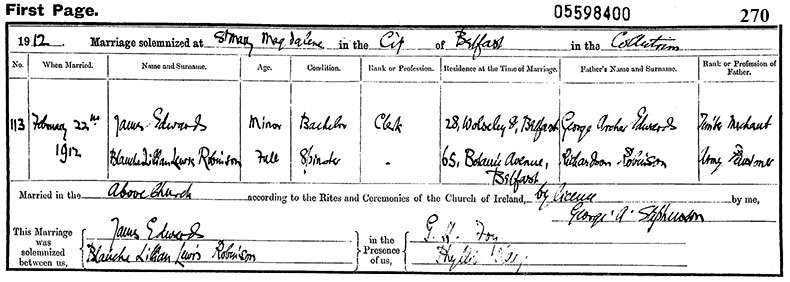 First Page.
05598400
270
1912 Marriage solemnized at St Mary Magdalene in the City of Belfast in the Co Antrim
No. When Married. Name and Surname. Age. Condition. Rank or Profession. Residence at the Time of Marriage. Father's Name and Surname. Rank or Profession of Father.
113 February 22nd 1912 James Edwards Minor Bachelor Clerk 28, Wolseley St, Belfast George Archer Edwards Timber Merchant
Blanche Lillian Lewis Robinson Full Spinster - 65, Botanic Avenue, Belfast Richardson Robinson Army Pensioner
Married in the above Church according to the Rites and Ceremonies of the Church of Ireland, by licence by me,
George A. Stephenson
This Marriage was solemnized between us, James Edwards
Blanche Lillian Lewis Robinson
in the Presence of us, G. Foy
Phyllis